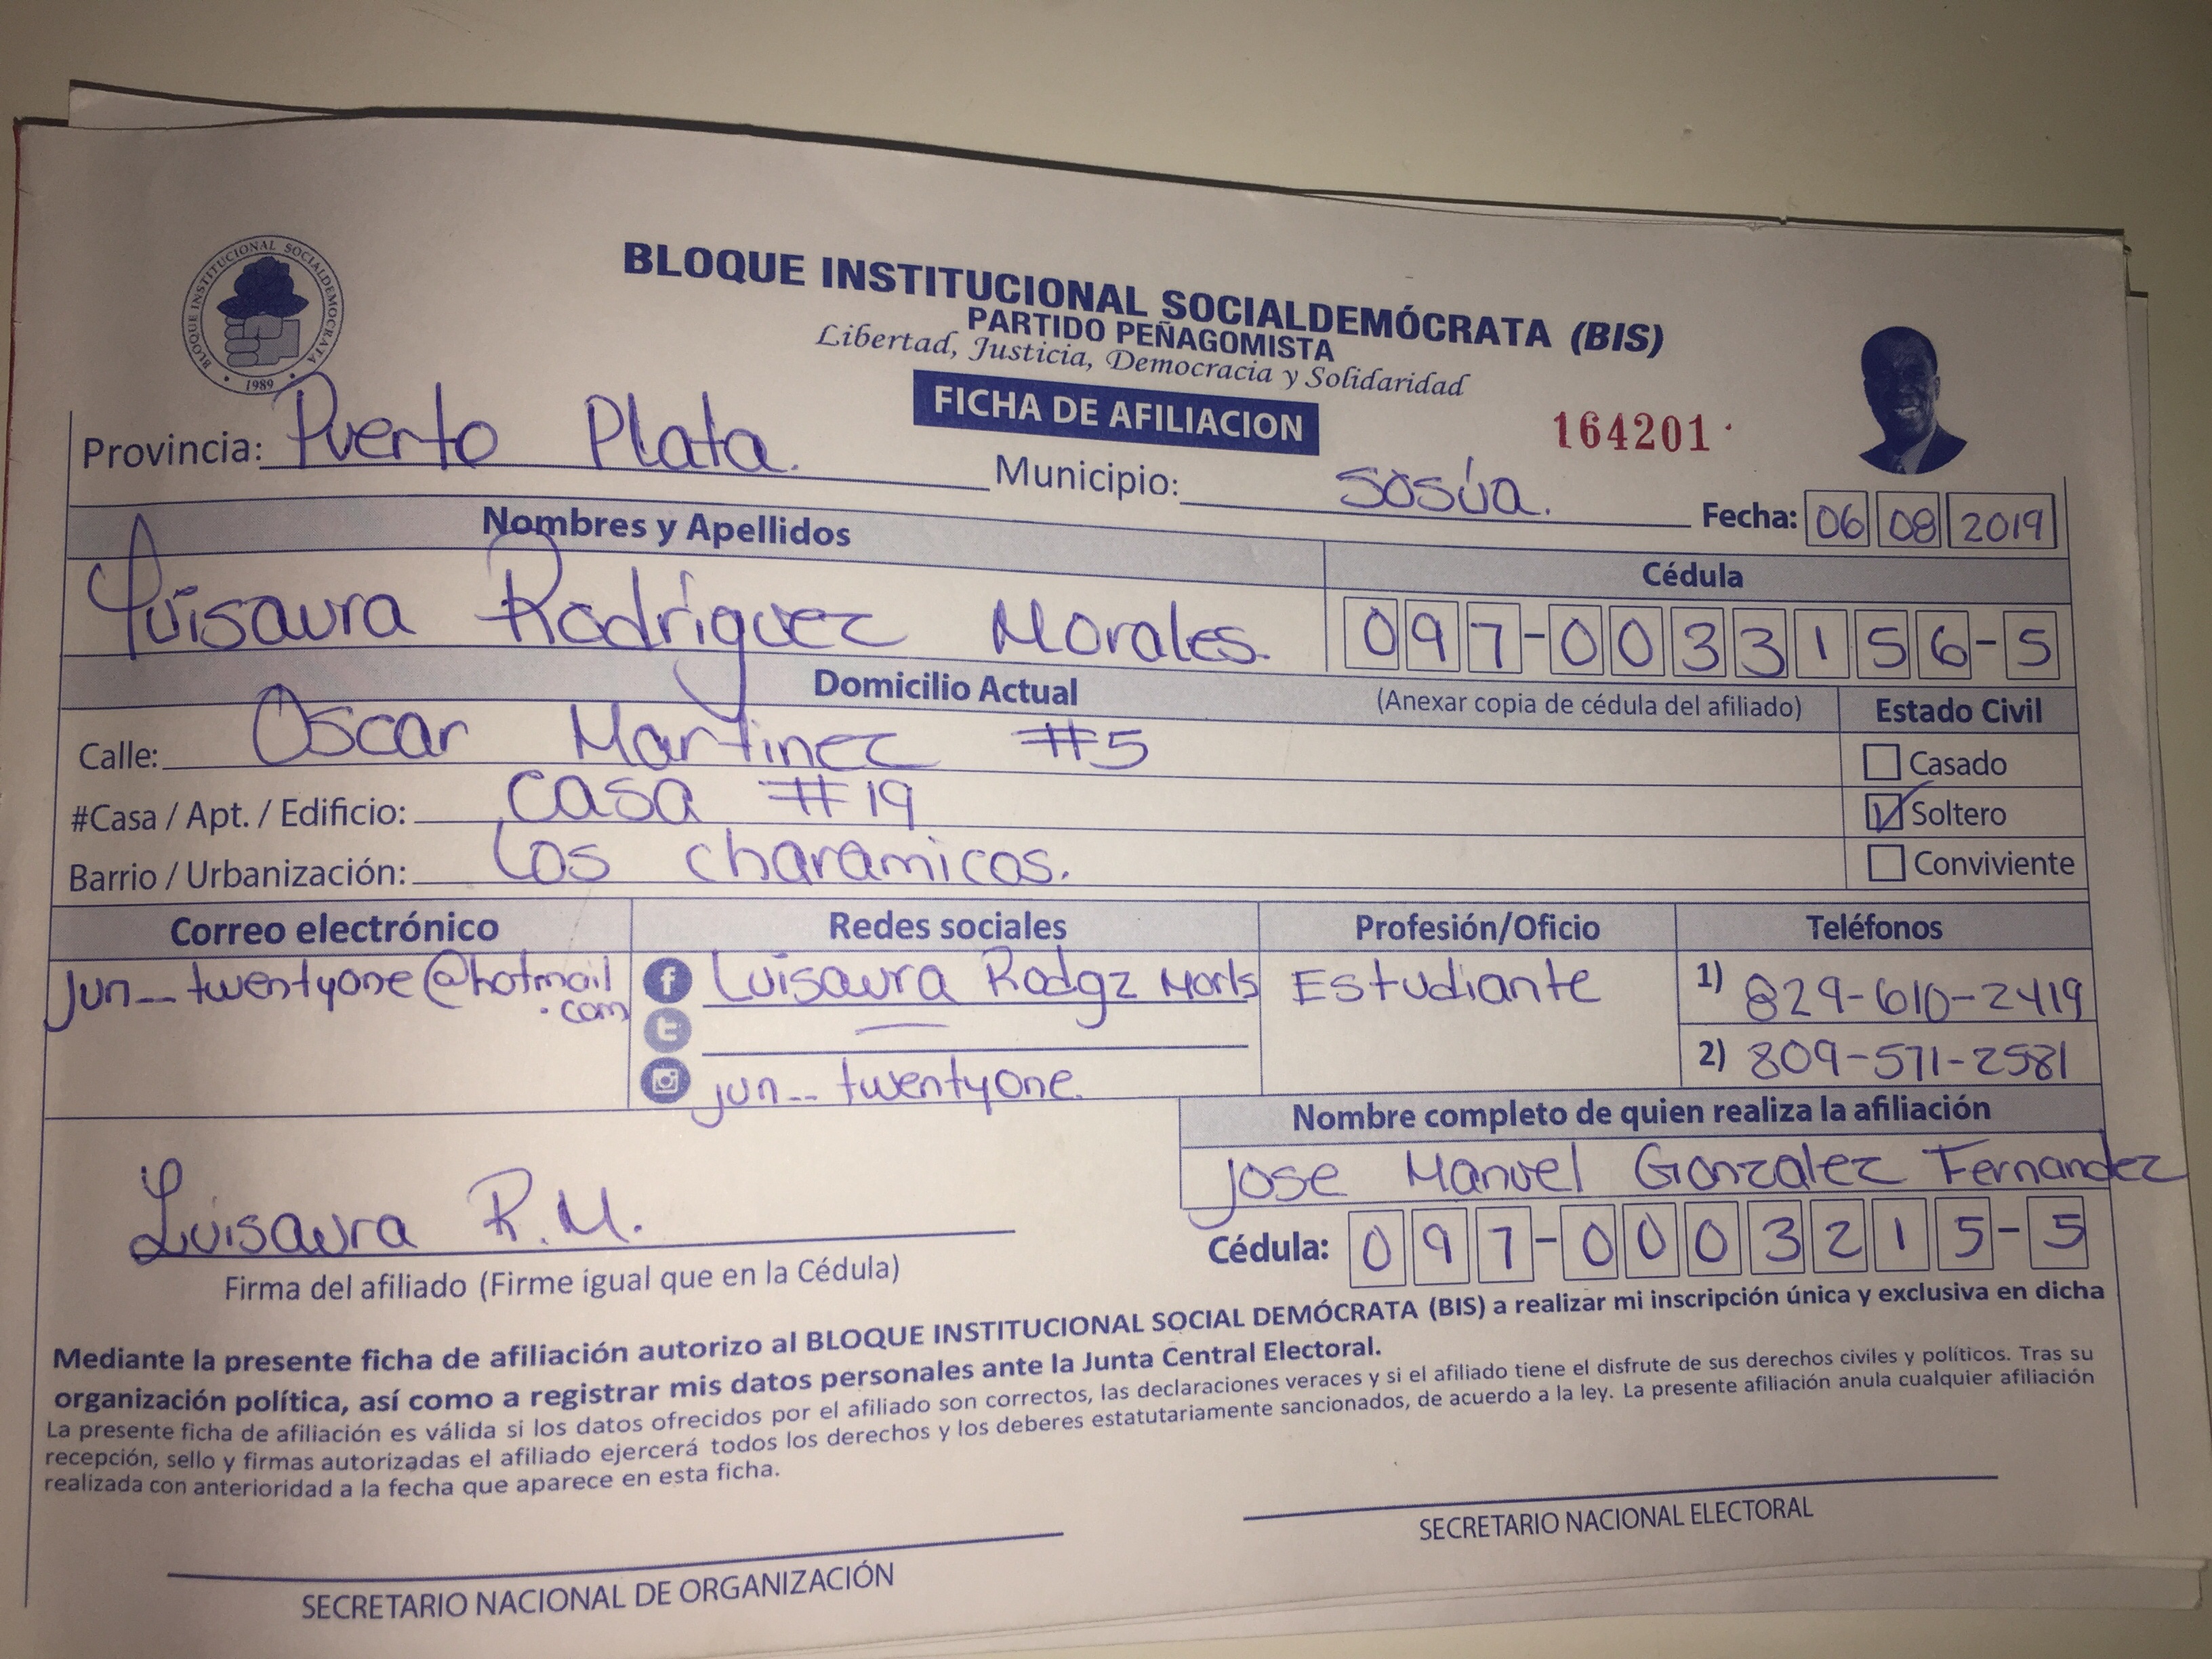 BLOQUE INSTITUCIONAL SOCIALDEMOCRATA
1989
BLOQUE INSTITUCIONAL SOCIALDEMÓCRATA (BIS)
PARTIDO PEÑAGOMISTA
Libertad, Justicia, Democracia y Solidaridad
FICHA DE AFILIACION
164201
Provincia: Puerto Plata. Municipio: Sosúa. Fecha: 06 08 2019
Nombres y Apellidos Cédula
Luisaura Rodriguez Morales. 097-0033156-5
Domicilio Actual (Anexar copia de cédula del afiliado) Estado Civil
Calle: Oscar Martinez #5 Casado
#Casa / Apt. / Edificio: casa #19 Soltero
Barrio / Urbanización: Los charamicos. Conviviente
Correo electrónico Redes sociales Profesión/Oficio Teléfonos
jun__twentyone@hotmail f Luisaura Rodgz Morls Estudiante 1) 829-610-2419
.com t
jun__twentyone. 2) 809-571-2581
Nombre completo de quien realiza la afiliación
Jose Manuel Gonzalez Fernandez
Luisaura R.M. Cédula: 097-0003215-5
Firma del afiliado (Firme igual que en la Cédula)
Mediante la presente ficha de afiliación autorizo al BLOQUE INSTITUCIONAL SOCIAL DEMÓCRATA (BIS) a realizar mi inscripción única y exclusiva en dicha
organización política, así como a registrar mis datos personales ante la Junta Central Electoral.
La presente ficha de afiliación es válida si los datos ofrecidos por el afiliado son correctos, las declaraciones veraces y si el afiliado tiene el disfrute de sus derechos civiles y políticos. Tras su
recepción, sello y firmas autorizadas el afiliado ejercerá todos los derechos y los deberes estatutariamente sancionados, de acuerdo a la ley. La presente afiliación anula cualquier afiliación
realizada con anterioridad a la fecha que aparece en esta ficha.
SECRETARIO NACIONAL DE ORGANIZACIÓN SECRETARIO NACIONAL ELECTORAL